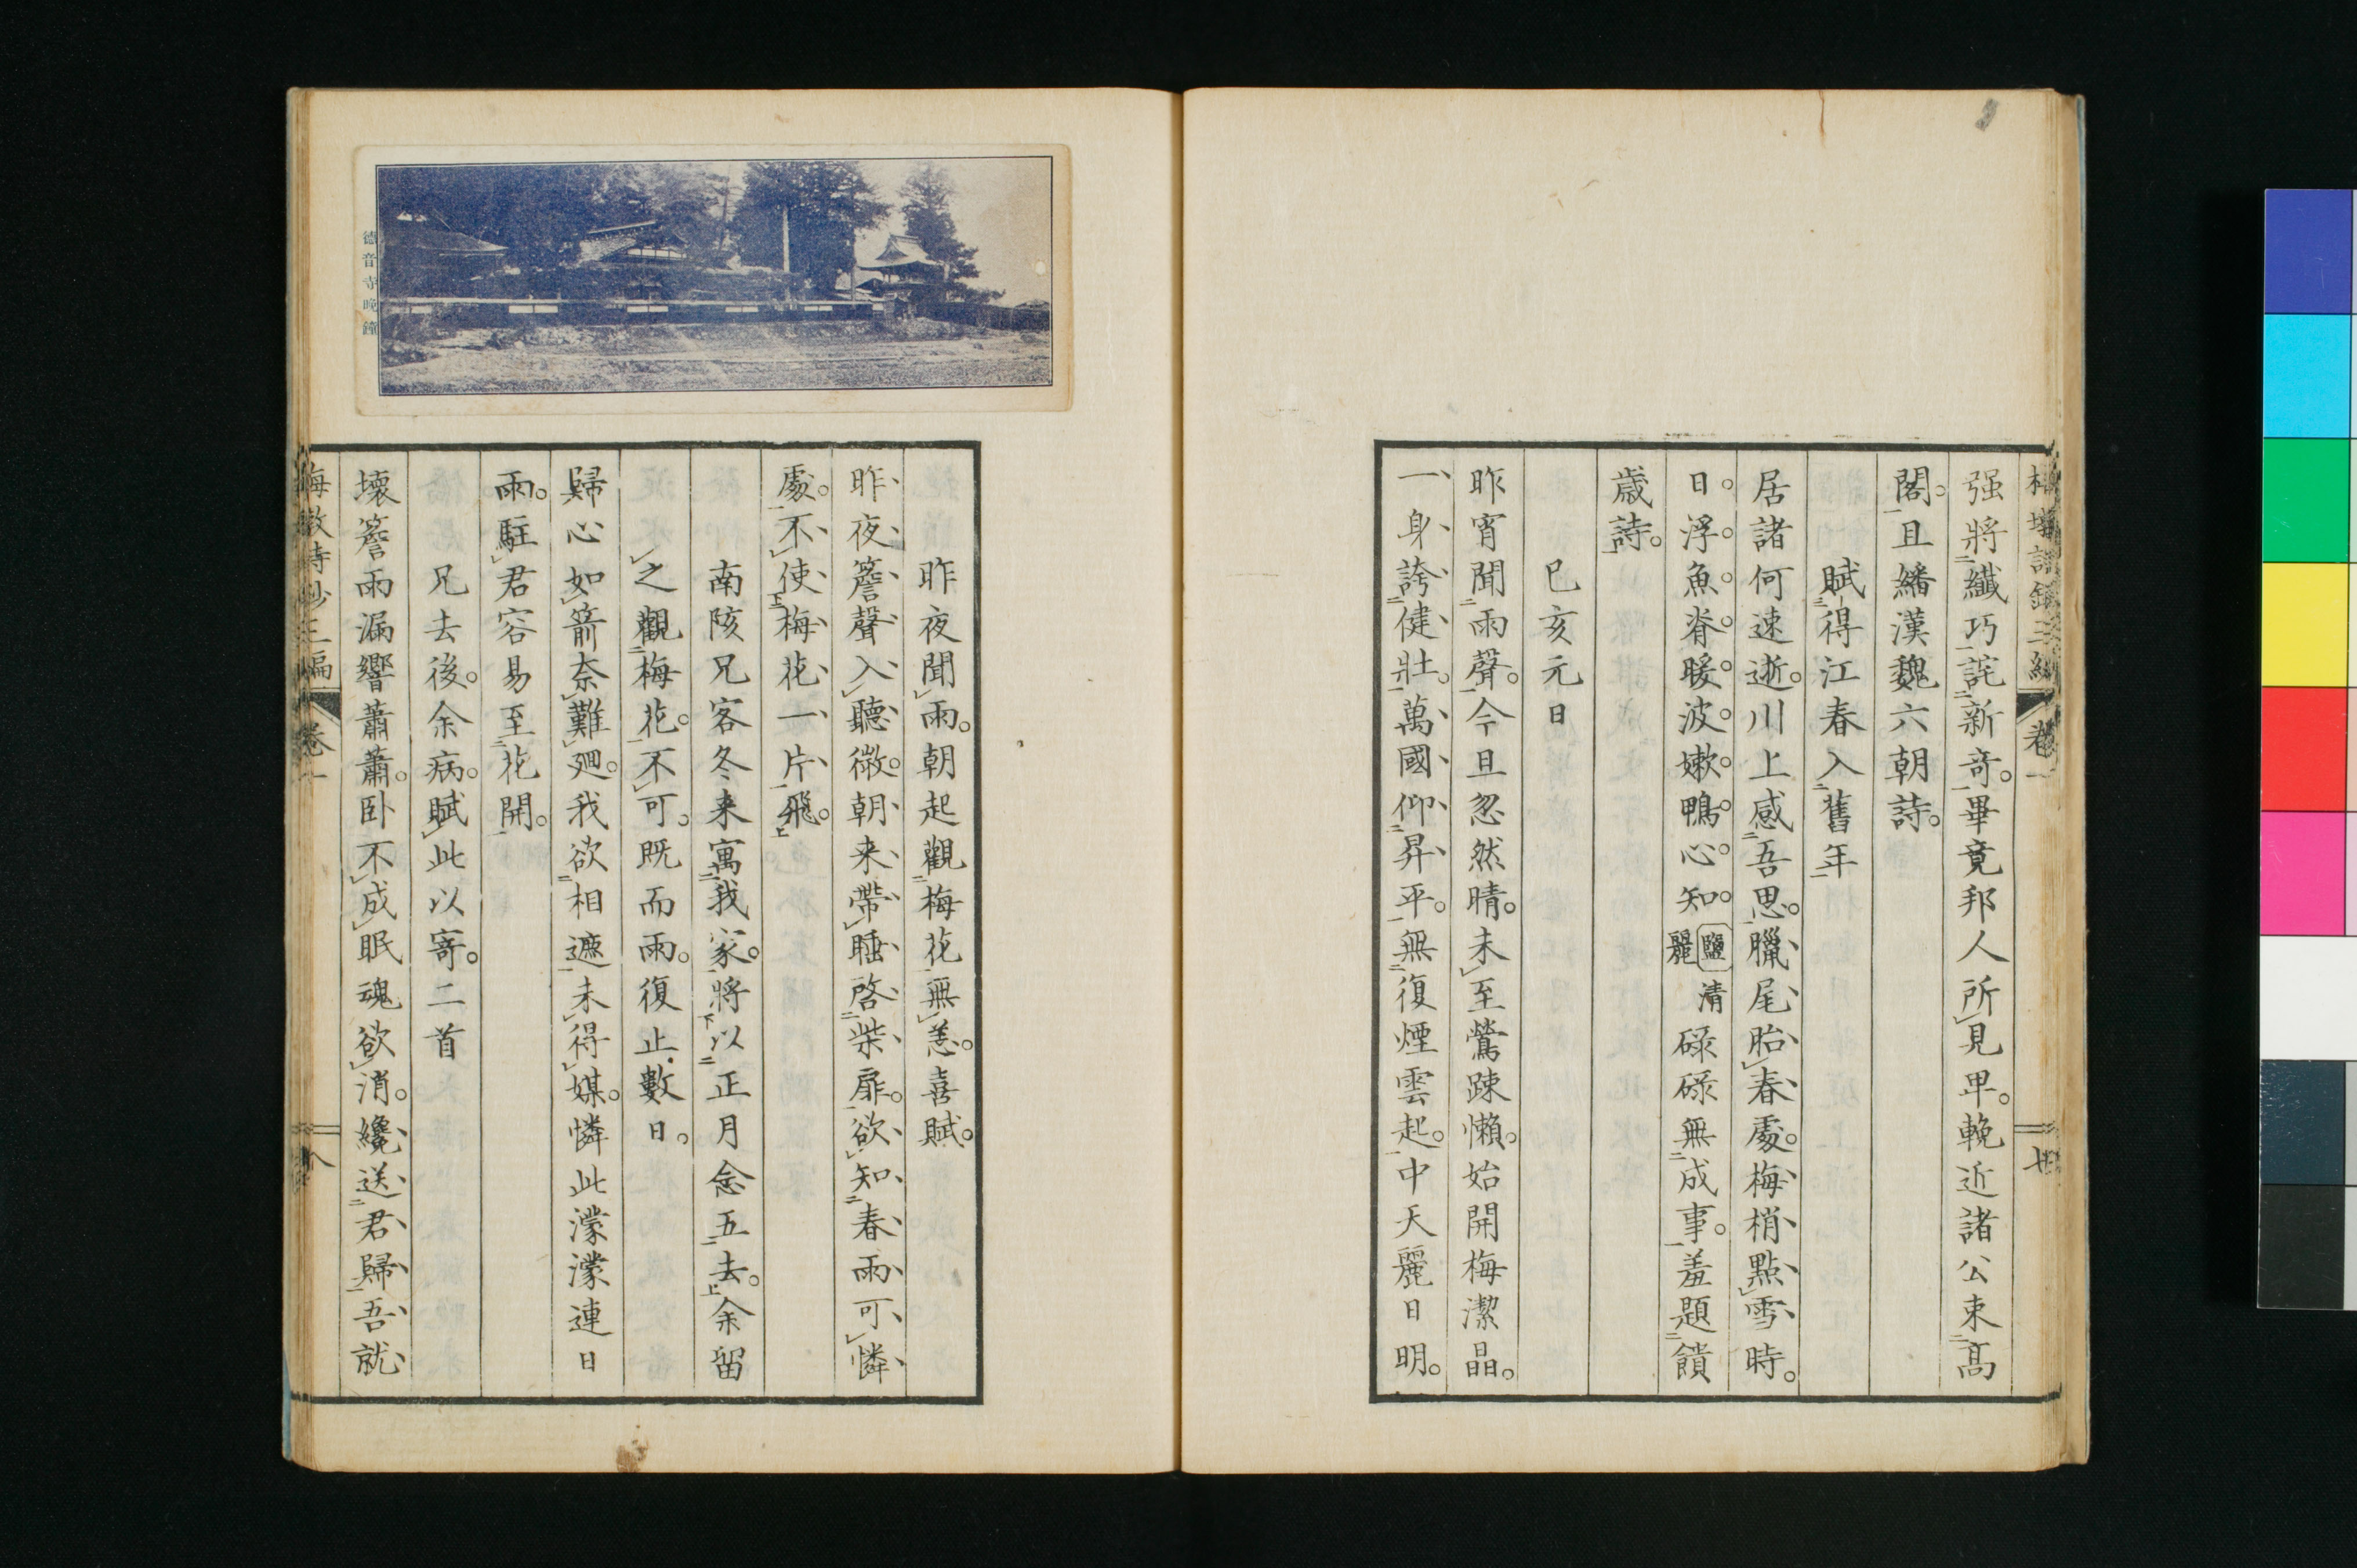 强將纎巧詫新奇。畢竟邦人所見卑。輓近諸公束高
閣。且繙漢魏六朝詩。
賦得江春入舊年
居諸何速逝。川上感吾思。臘尾胎春處。梅梢點雪時。
日浮魚脊暖。波嫰鴨心知。鹽麗清碌碌無成事。羞題饋
歳詩。
已亥元日
昨宵聞雨聲。今旦忽然晴。未至鶯踈懶。始開梅潔晶。
一身誇健壯。萬國仰昇平。無復煙雲起。中天麗日明。
卷一
德音寺晚鐘
昨夜聞雨。朝起觀梅花無恙。喜賦。
昨夜簷聲入聽微。朝来帶睡啓柴扉。欲知春雨可憐
處。不使梅花一片飛。
南陔兄客冬来寓我家。將以正月念五去。余留
之觀梅花。不可。既而雨。復止數日。
歸心如箭奈難廻。我欲相遮未得媒。憐此濛濛連日
雨。駐君容易至花開。
兄去後。余病。賦此以寄。二首
壞簷雨漏響蕭蕭。卧不成眠魂欲消。纔送君歸吾就
卷一
八